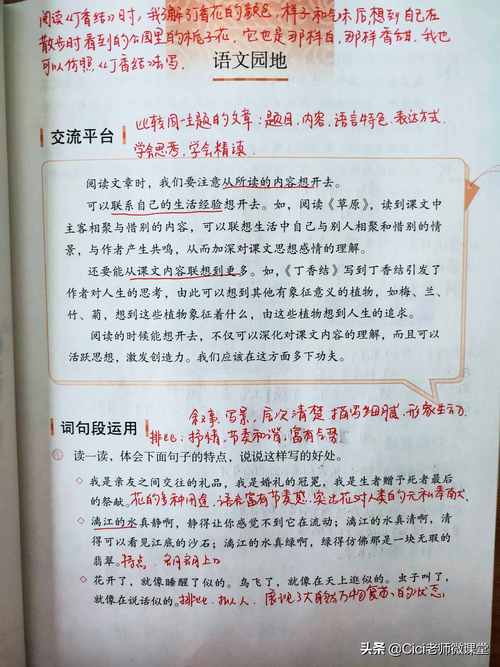 阅读《丁香结》时，我了解了丁香花的颜色，样子和气味后想到自己在
散步时看到的公园里的栀子花，它也是那样白，那样香甜，我也
可以仿照《丁香结》去写.
语文园地
交流平台
比较同一主题的文章：题目、内容、语言特色、表达方式.
学会思考，学会精读.
阅读文章时，我们要注意从所读的内容想开去。
可以联系自己的生活经验想开去。如，阅读《草原》，读到课文中
主客相聚与惜别的内容，可以联想生活中自己与别人相聚和惜别的情
景，与作者产生共鸣，从而加深对课文思想感情的理解。
还要能从课文内容联想到更多。如，《丁香结》写到丁香结引发了
作者对人生的思考，由此可以想到其他有象征意义的植物，如梅、兰、
竹、菊，想到这些植物象征着什么，由这些植物想到人生的追求。
阅读的时候能想开去，不仅可以深化对课文内容的理解，而且可以
活跃思想，激发创造力。我们应该在这方面多下功夫。
词句段运用
叙事、写景，层次清楚，描写细腻，形象生动.
排比：抒情，节奏和谐，富有气势
读一读，体会下面句子的特点，说说这样写的好处。
我是亲友之间交往的礼品，我是婚礼的冠冕，我是生者赠予死者最后
的祭献。花的多种用途，语言富有节奏感，突出花对人类的
漓江的水真静啊，静得让你感觉不到它在流动；漓江的水真清啊，清
得可以看见江底的沙石；漓江的水真绿啊，绿得仿佛那是一块无瑕的
翡翠。特点
花开了，就像睡醒了似的。鸟飞了，就像在天上逛似的。虫子叫了，
就像在说话似的。排比、拟人，展现了大自然万物复苏的状态，
头条 @Cici老师微课堂